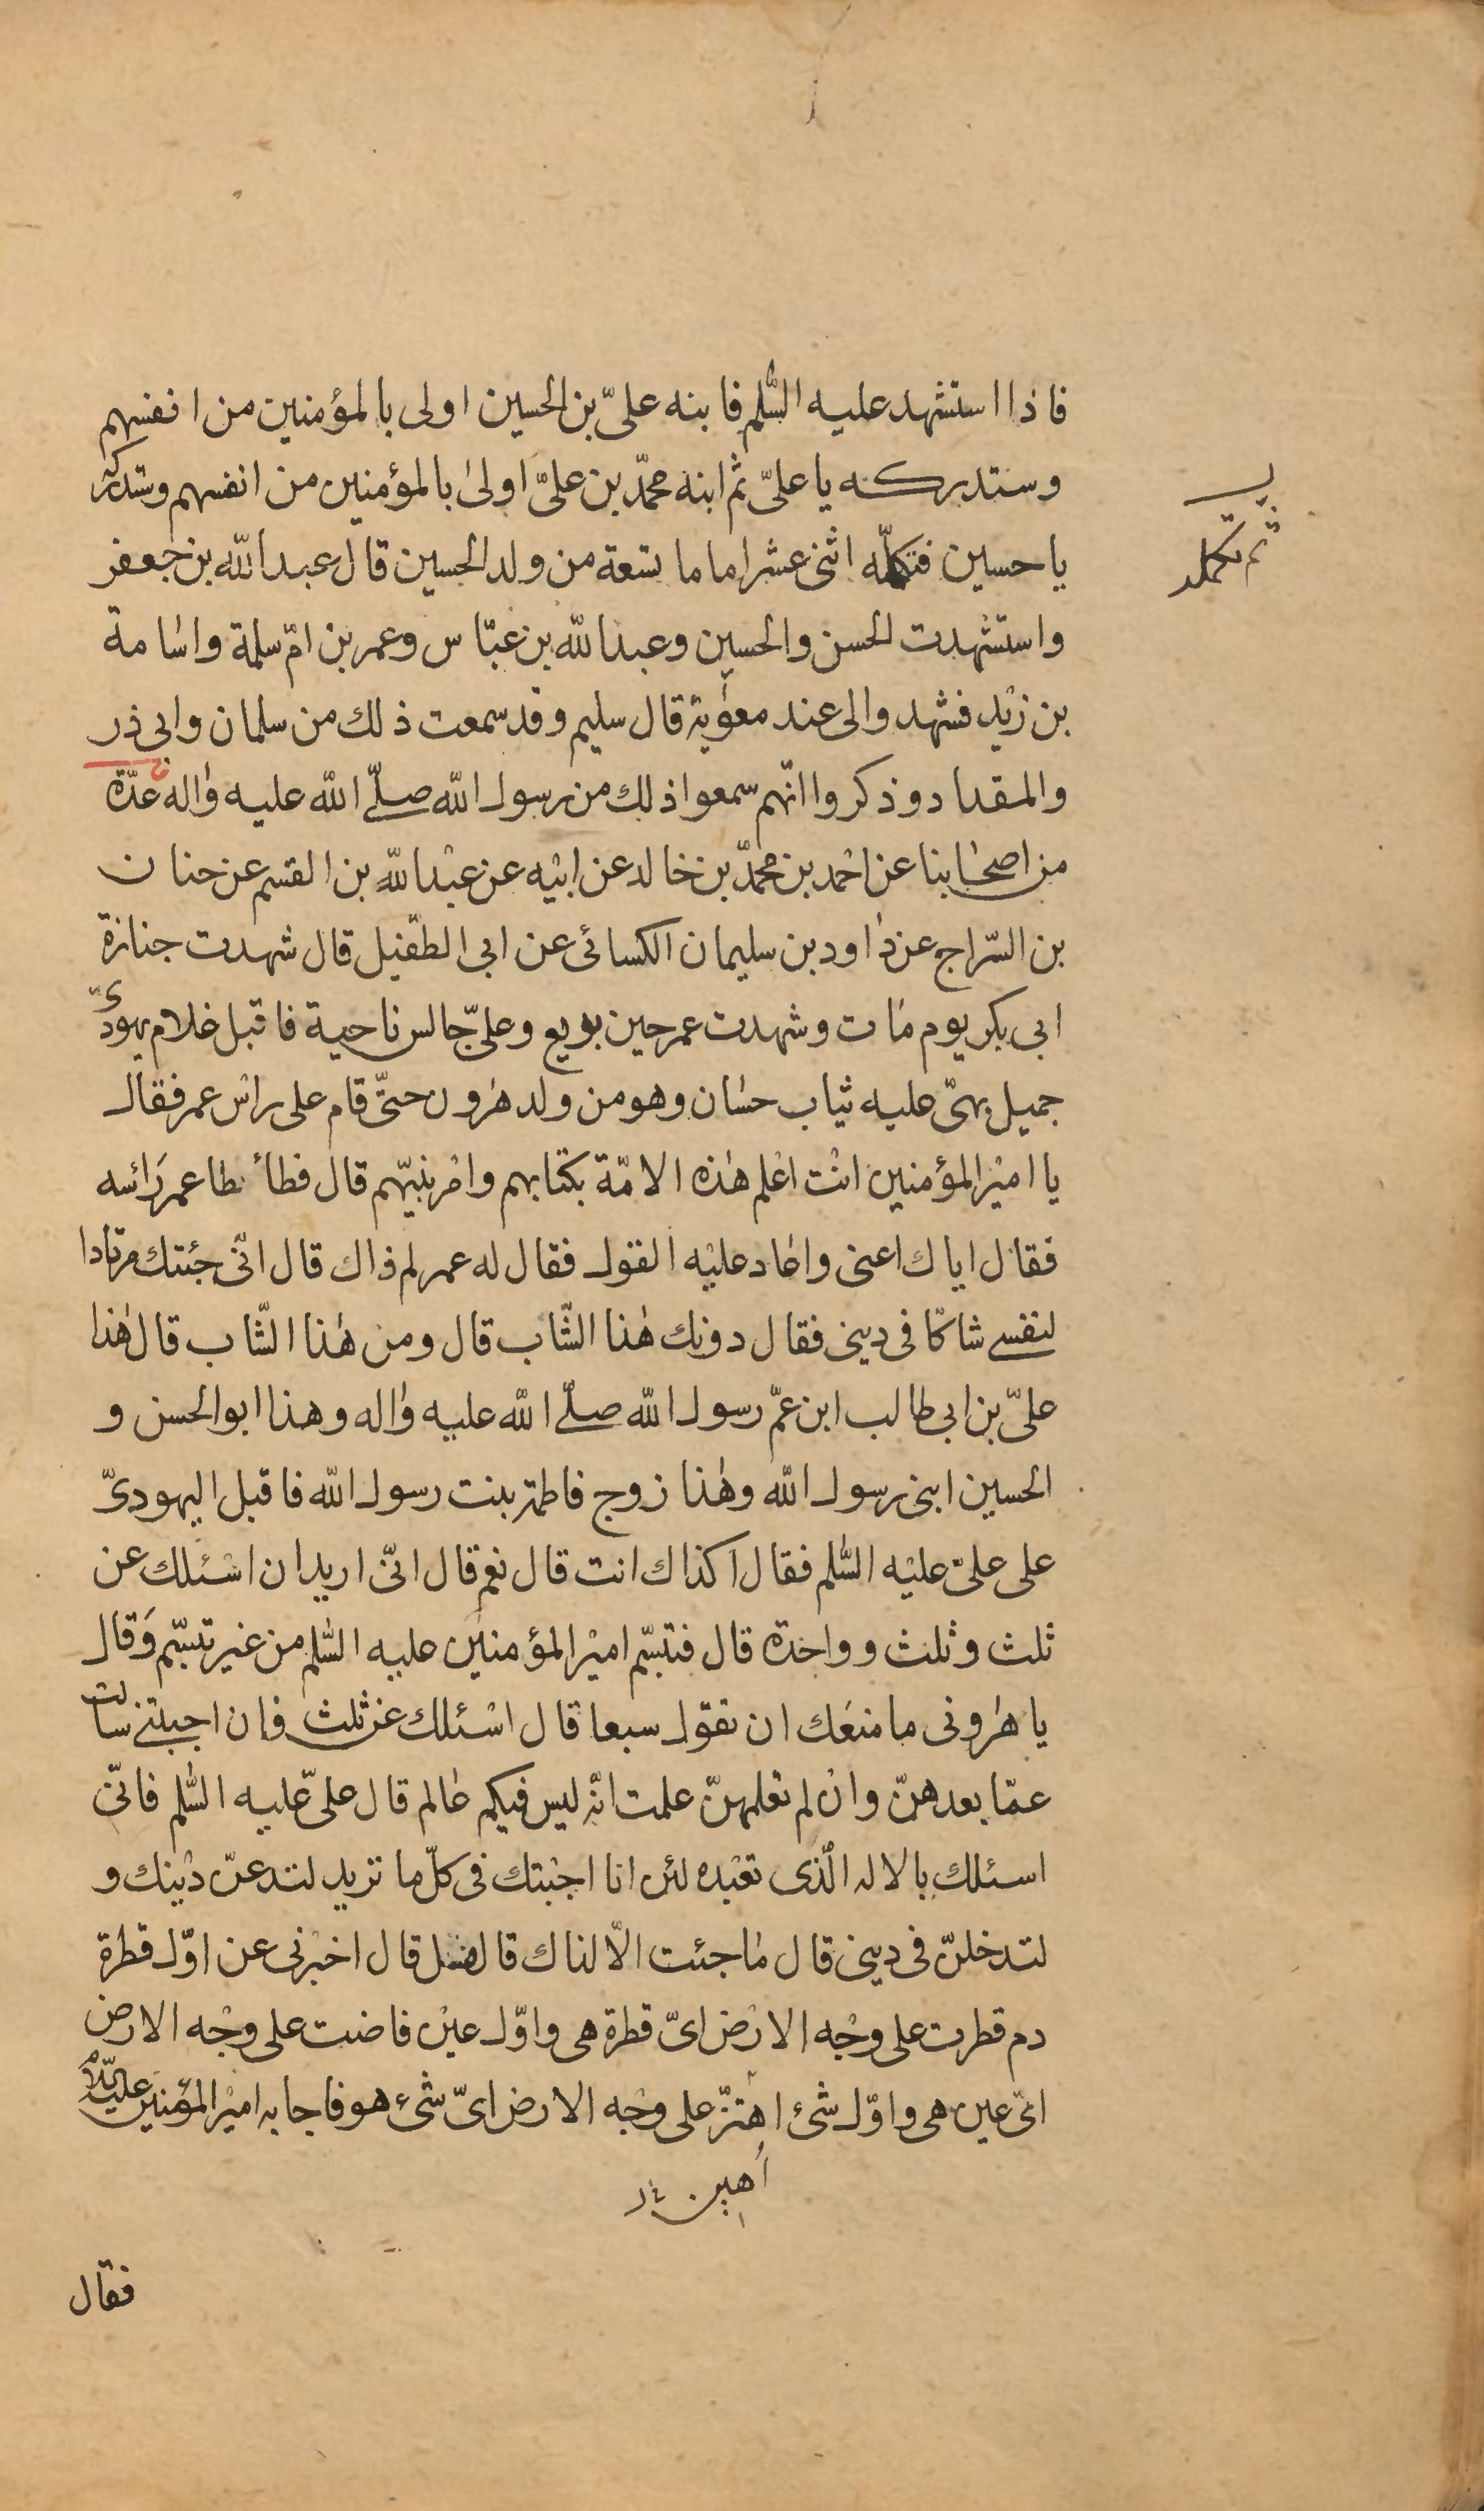 فاذا استشهد عليه السّلم فابنه علىّ بن الحسين اولى بالمؤمنين من انفسهم
وستدركه يا علىّ ثم ابنه محمّد بن علىّ اولىٰ بالمؤمنين من انفسهم وستدركه
يا حسين فتكمّله اثنى عشر اماما تسعة من ولد الحسين قال عبد اللّه بن جعفر
ثم تكمله
واستشهدت الحسن والحسين وعبد اللّه بن عبّاس وعمر بن امّ سلمة واسامة
بن زيد فشهدوا لى عند معوٰية قال سليم وقد سمعت ذلك من سلمان وابى ذر
والمقداد وذكروا انّهم سمعوا ذلك من رسول اللّه صلّى اللّه عليه واله عدّة
من اصحابنا عن احمد بن محمّد بن خالد عن ابيه عن عبد اللّه بن القسم عن حنان
بن السّراج عن داود بن سليمان الكسائى عن ابى الطفيل قال شهدت جنازة
ابى بكر يوم مات وشهدت عمر حين بويع وعلىّ جالس ناحية فاقبل غلام يهودىّ
جميل بهىّ عليه ثياب حسان وهو من ولد هٰرون حتّى قام على راس عمر فقال
يا امير المؤمنين انت اعلم هٰذه الامّة بكتابهم وامر نبيّهم قال فطأطا عمر رَاسه
فقال اياك اعنى واعاد عليه القول فقال له عمر لم ذاك قال انّى جئتك مرتادا
لنفسى شاكّا فى دينى فقال دونك هٰذا الشّاب قال ومن هٰذا الشّاب قال هٰذا
علىّ بن ابى طالب ابن عمّ رسول اللّه صلّى اللّه عليه واله وهذا ابو الحسن و
الحسين ابنى رسول اللّه وهٰذا زوج فاطمة بنت رسول اللّه فاقبل اليهودىّ
على علىّ عليه السّلم فقال اكذاك انت قال نعم قال انّى اريد ان اسئلك عن
ثلث وثلث وواحدة قال فتبسّم امير المؤمنين عليه السّلم من غير تبسّم وَقال
يا هٰرونى ما منعَك ان تقول سبعا قال اسئلك عن ثلث فان اجبتنى سالت
عمّا بعدهنّ وان لم تعلمهنّ علمت انّه ليس فيكم عالم قال علىّ عليه السّلم فانّى
اسئلك بالاله الّذى تعبده لئن انا اجبتك فى كلّ ما تريد لتدعنّ دينك و
لتدخلنّ فى دينى قال ما جئت الاّ لذاك قال فسل قال اخبرنى عن اوّل قطرة
دم قطرت على وجه الارض اىّ قطرة هى واوّل عين فاضت على وجه الارض
اىّ عين هى واوّل شئ اهتزّ على وجه الارض اىّ شئ هو فاجابه امير المؤمنين عليه السّلام
فقال